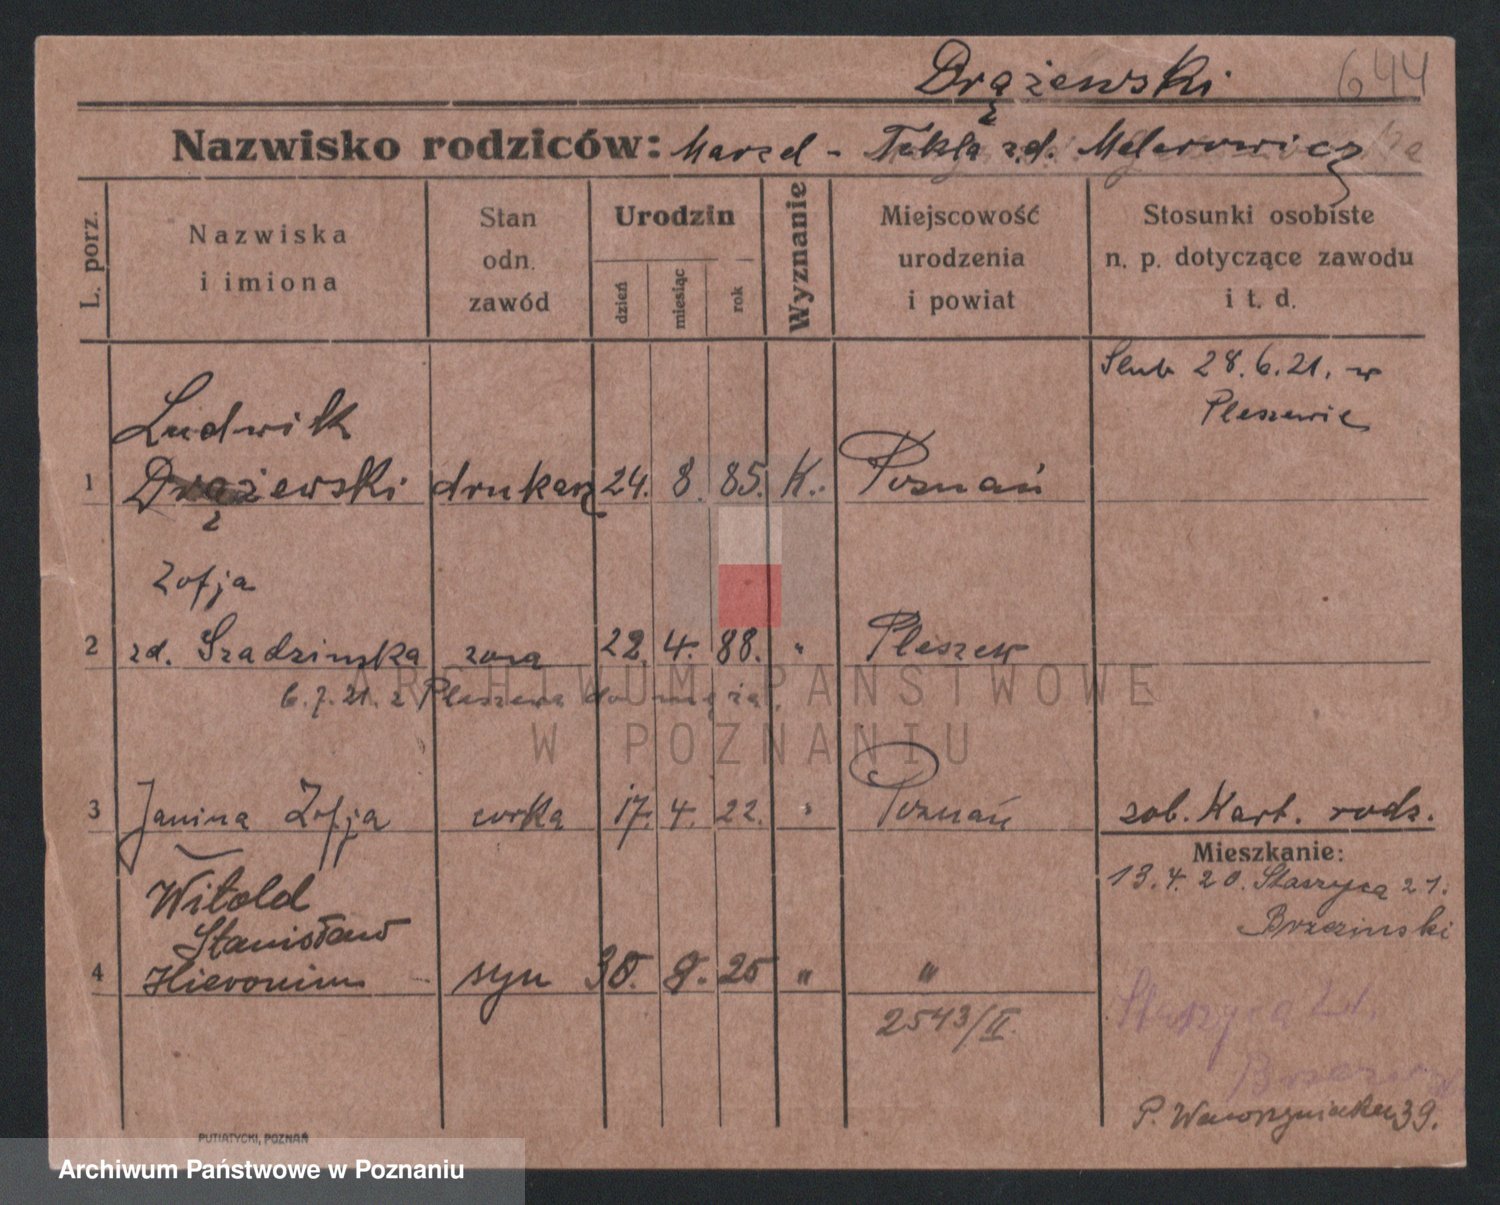 Drążewski 644
Nazwisko rodziców: Marcel - Tekla zd.
L. porz.
Nazwiska
i imiona
Stan
odn.
zawód
Urodzin
dzień
miesiąc
rok
Wyznanie
Miejscowość
urodzenia
i powiat
Stosunki osobiste
n. p. dotyczące zawodu
i t. d.
Ślub 28.6.21. w
Pleszewie
Ludwik
1 Drążewski drukarz 24. 8. 85. K. Poznań
Zofja
2 zd. Szadzinska żona 22. 4. 88. " Pleszew
6.7.21. z Pleszewa do męża.
3 Janina Zofja córka 17. 4. 22. " Poznań zob. Kart. rodz.
Mieszkanie:
13.4.20. Staszyca 21.
Brzezinski
Witold
Stanisław
4 Hieronim syn 30. 9. 25 " "
2543/II.
Staszyca
P. Wawrzyniaka 39.
PUTIATYCKI, POZNAŃ
ARCHIWUM PAŃSTWOWE
W POZNANIU
Archiwum Państwowe w Poznaniu